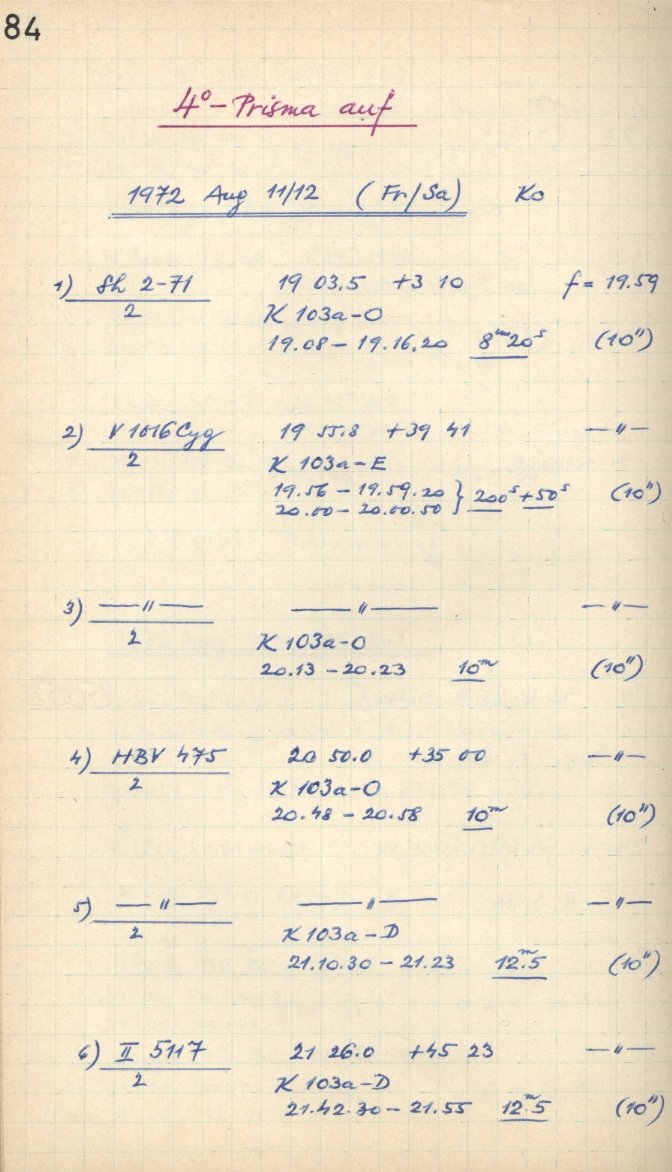 84
4°-Prisma auf
1972 Aug 11/12 (Fr/Sa) Ko
1) Sh 2-71 19 03.5 +3 10 f = 19.59
2 K 103a-O
19.08 – 19.16.20 8ᵐ20ˢ (10")
2) V1016 Cyg 19 55.8 +39 41 —"—
2 K 103a-E
19.56 – 19.59.20 } 200ˢ+50ˢ (10")
20.00 – 20.00.50
3) —"— —"— —"—
2 K 103a-O
20.13 – 20.23 10ᵐ (10")
4) HBV 475 20 50.0 +35 00 —"—
2 K 103a-O
20.48 – 20.58 10ᵐ (10")
5) —"— —"— —"—
2 K 103a-D
21.10.30 – 21.23 12ᵐ.5 (10")
6) II 5117 21 26.0 +45 23 —"—
2 K 103a-D
21.42.30 – 21.55 12ᵐ.5 (10")